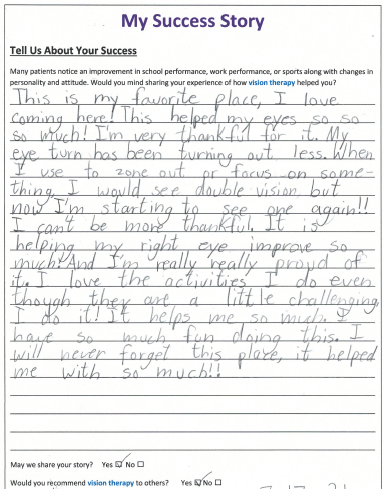 My Success Story
Tell Us About Your Success
Many patients notice an improvement in school performance, work performance, or sports along with changes in
personality and attitude. Would you mind sharing your experience of how vision therapy helped you?
This is my favorite place, I love
coming here! This helped my eyes so so
so much! I'm very thankful for it. My
eye turn has been turning out less. When
I use to zone out or focus on some-
thing, I would see double vision but
now I'm starting to see one again!!
I can't be more thankful! It is
helping my right eye improve so
much! And I'm really really proud of
it. I love the activities I do even
though they are a little challenging
I do it! It helps me so much. I
have so much fun doing this. I
will never forget this place, it helped
me with so much!!
May we share your story? Yes ☑ No ☐
Would you recommend vision therapy to others? Yes ☑ No ☐